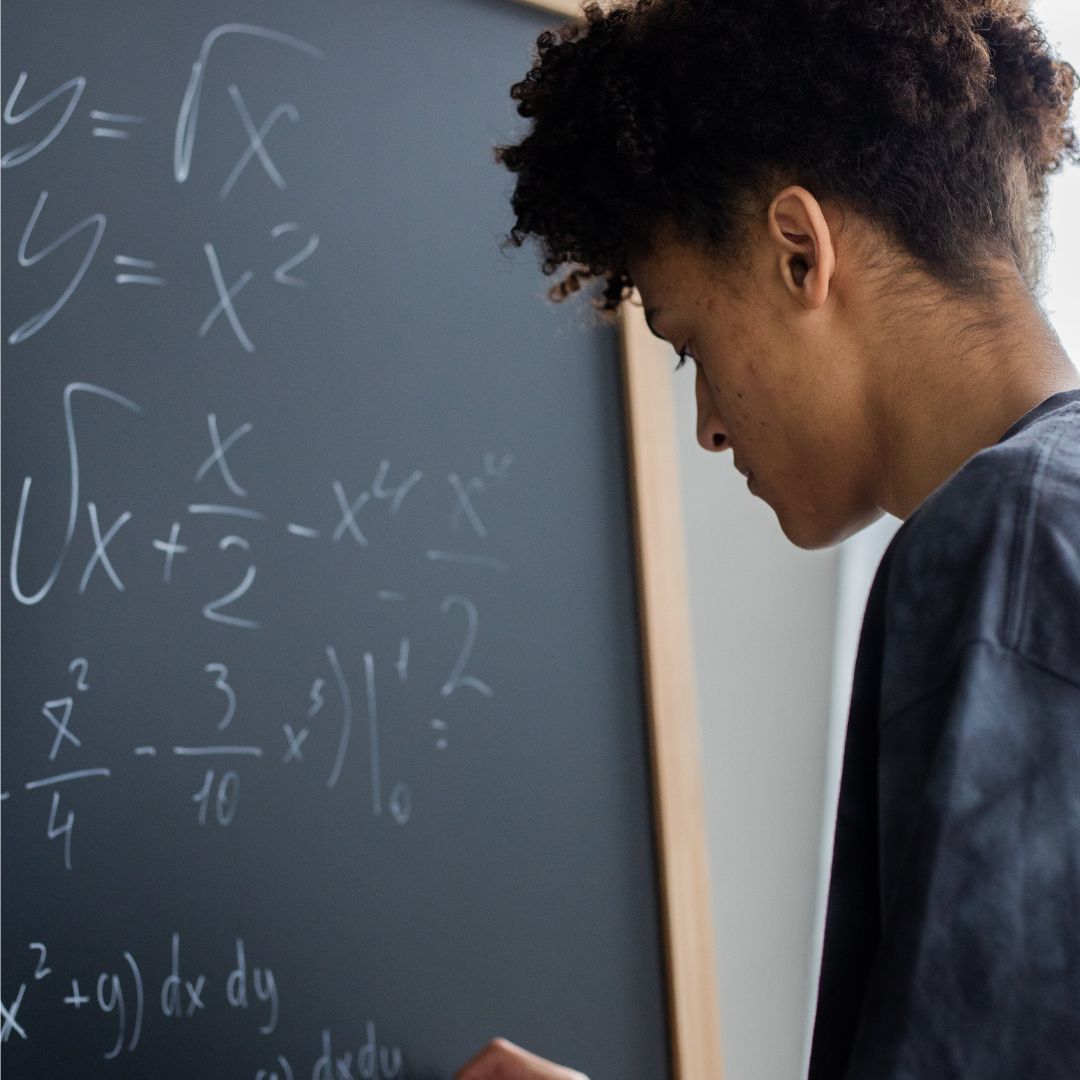 y = √x
y = x²
√x + x/2 - x⁴ - x⁴/2
x²/4 - 3/10 x⁵) |₀¹ =
x² + y) dx dy
) dx dy